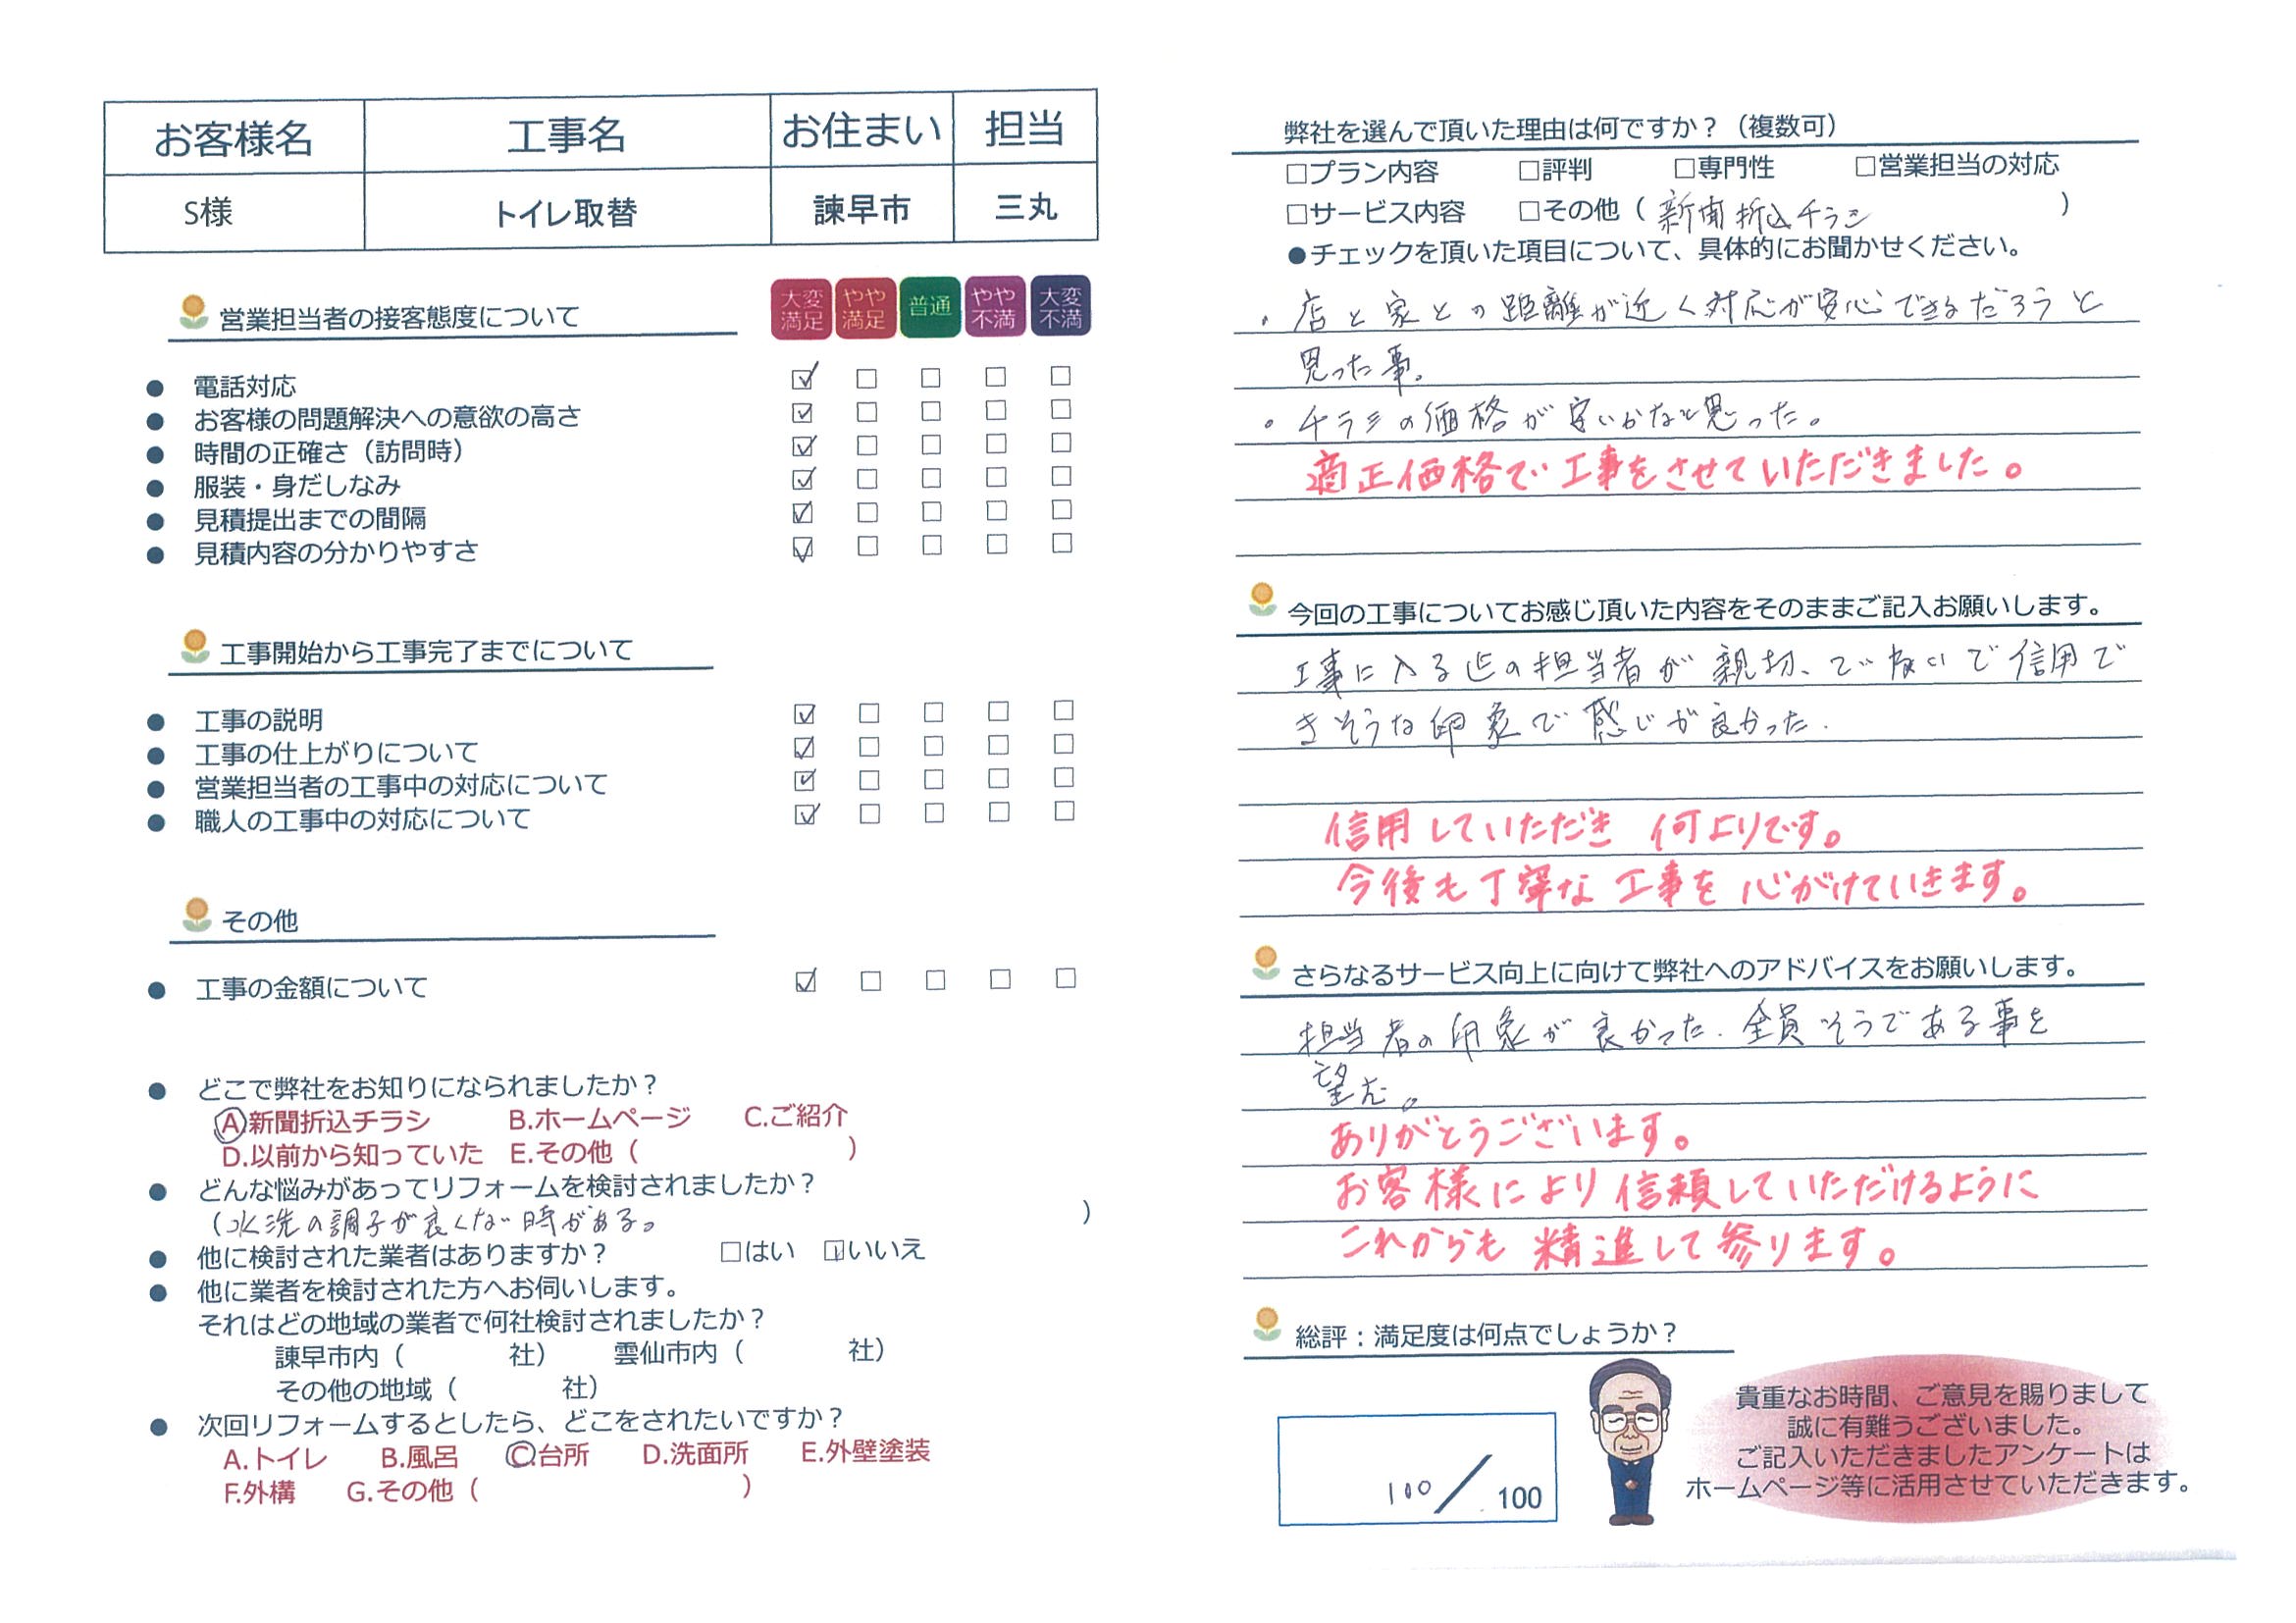 お客様名 工事名 お住まい 担当
S様 トイレ取替 諫早市 三丸
営業担当者の接客態度について
大変満足 やや満足 普通 やや不満 大変不満
● 電話対応 ☑ □ □ □ □
● お客様の問題解決への意欲の高さ ☑ □ □ □ □
● 時間の正確さ（訪問時） ☑ □ □ □ □
● 服装・身だしなみ ☑ □ □ □ □
● 見積提出までの間隔 ☑ □ □ □ □
● 見積内容の分かりやすさ ☑ □ □ □ □
工事開始から工事完了までについて
● 工事の説明 ☑ □ □ □ □
● 工事の仕上がりについて ☑ □ □ □ □
● 営業担当者の工事中の対応について ☑ □ □ □ □
● 職人の工事中の対応について ☑ □ □ □ □
その他
● 工事の金額について ☑ □ □ □ □
● どこで弊社をお知りになられましたか？
A新聞折込チラシ B.ホームページ C.ご紹介
D.以前から知っていた E.その他（ ）
● どんな悩みがあってリフォームを検討されましたか？
（水洗の調子が良くない時がある。 ）
● 他に検討された業者はありますか？ □はい ☑いいえ
● 他に業者を検討された方へお伺いします。
それはどの地域の業者で何社検討されましたか？
諫早市内（ 社） 雲仙市内（ 社）
その他の地域（ 社）
● 次回リフォームするとしたら、どこをされたいですか？
A.トイレ B.風呂 C.台所 D.洗面所 E.外壁塗装
F.外構 G.その他（ ）
弊社を選んで頂いた理由は何ですか？（複数可）
□プラン内容 □評判 □専門性 □営業担当の対応
□サービス内容 □その他（新聞折込チラシ ）
●チェックを頂いた項目について、具体的にお聞かせください。
・店と家との距離が近く対応が安心できるだろうと
思った事。
・チラシの価格が安いかなと思った。
適正価格で工事をさせていただきました。
今回の工事についてお感じ頂いた内容をそのままご記入お願いします。
工事に入る迄の担当者が親切、ていねいで信用で
きそうな印象で感じが良かった.
信用していただき 何よりです。
今後も丁寧な工事を心がけていきます。
さらなるサービス向上に向けて弊社へのアドバイスをお願いします。
担当者の印象が良かった. 全員そうである事を
望む。
ありがとうございます。
お客様により信頼していただけるように
これからも精進して参ります。
総評：満足度は何点でしょうか？
100／100
貴重なお時間、ご意見を賜りまして
誠に有難うございました。
ご記入いただきましたアンケートは
ホームページ等に活用させていただきます。